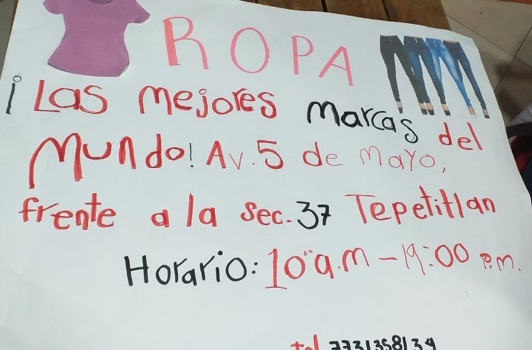 ROPA
¡Las mejores marcas del
Mundo! Av. 5 de Mayo,
frente a la Sec. 37 Tepetitlan
Horario: 10:00 a.m - 19:00 p.m.
tel 7731358134